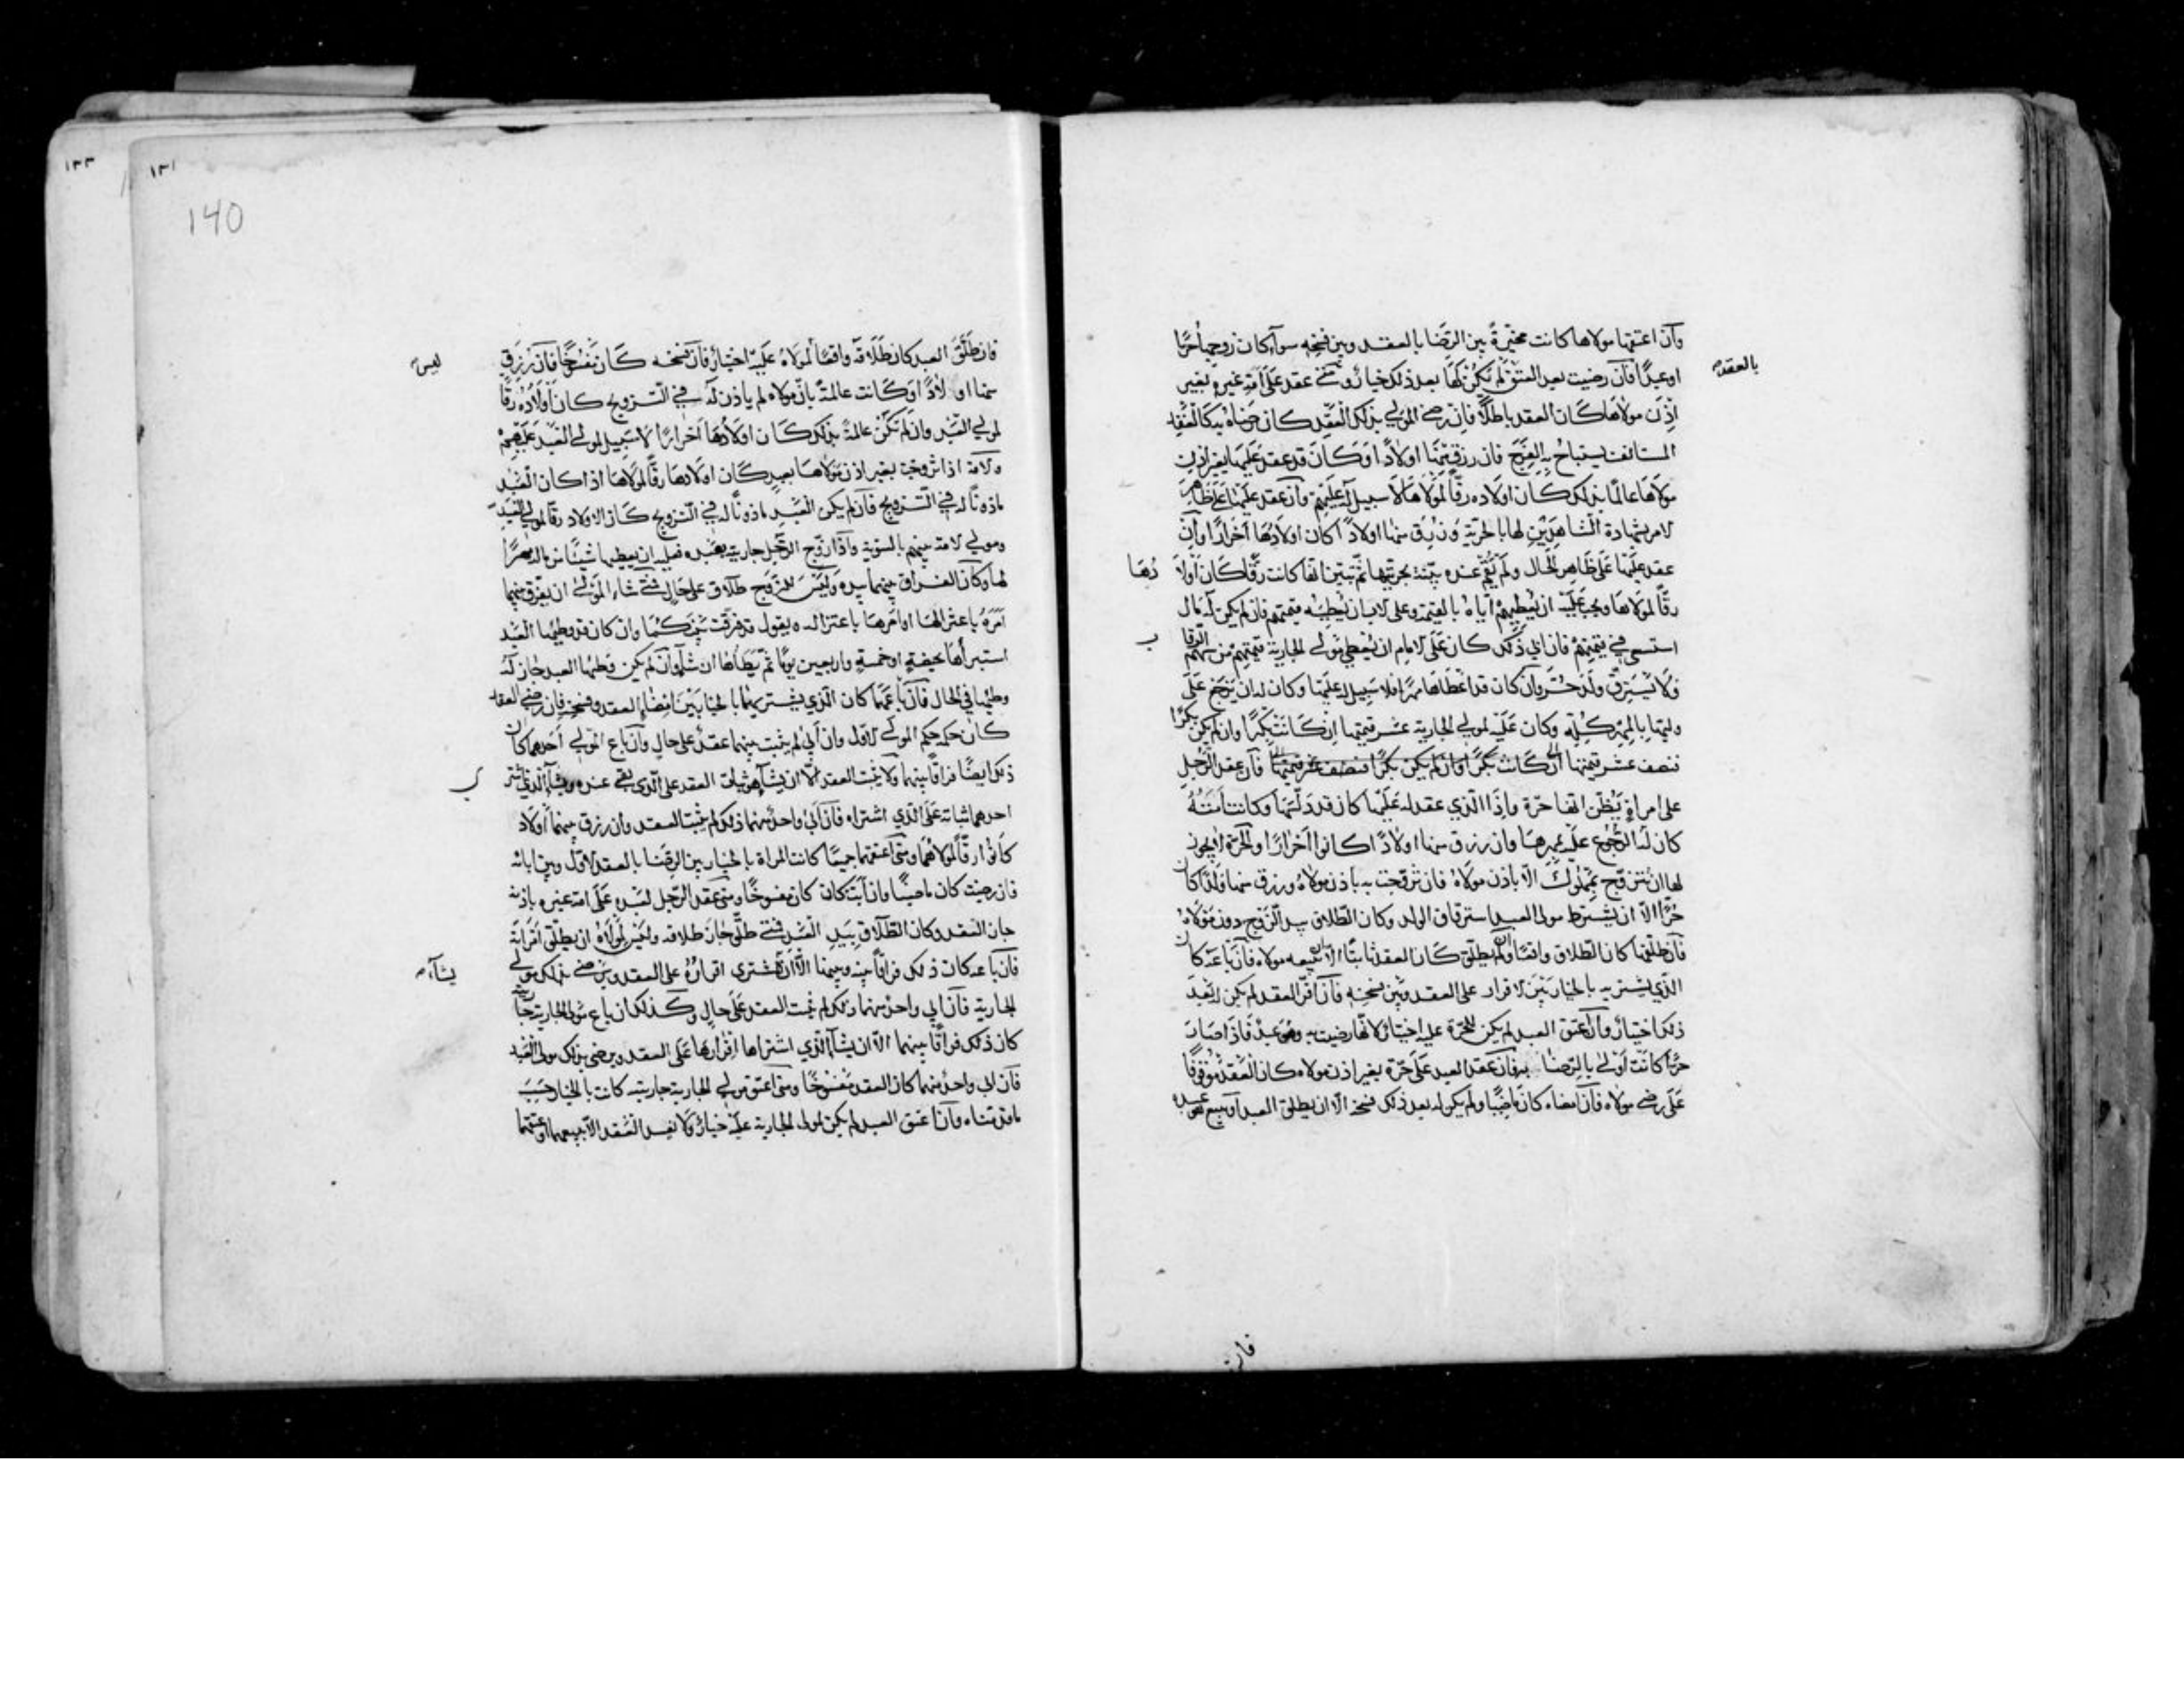 وان اعتقها مولاها كانت مخيّرةً بين الرّضا بالعقد وبين فسخه سوآء كان زوجها حرًّا
بالعقد
او عبدًا فان رضيت بعد العتق لم يكن لها بعد ذلك خيار ومتى عقد على امة غيره بغير
اذن مولاها كان العقد باطلًا فان رضى المولى بذلك العقد كان رضاه به كالعقد
المستانف يستباح به الفرج فان رزق منها اولادًا وكان قد عقد عليها بغير اذن
مولاها عالمًا بذلك كان اولاده رقًّا لمولاها لا سبيل له عليهم وان عقد عليها على ظاهر
الامر بشهادة الشاهدين لها بالحرّية ورزق منها اولادًا كان اولادها احرارًا وان
عقد عليها على ظاهر الحال ولم يقم عنده بيّنة بحرّيتها ثمّ تبيّن انّها كانت رقًّا كان اولا
دها
رقًّا لمولاها ويجب عليه ان يعطيهم اباه بالقيمة وعلى الاب ان يعطيه قيمتهم فان لم يكن له مال
استسعى فى قيمتهم فان ابى ذلك كان على الامام ان يعطى مولى الجارية قيمتهم من سهم الرقا
ب
ولا يسترقّ ولد حرّ وان كان قد اعطاها مهرًا فلا سبيل له عليها وكان له ان يرجع على
وليّها بالمهر كلّه وكان عليه لمولى الجارية عشر قيمتها ان كانت بكرًا وان لم يكن بكرًا
فنصف عشر قيمتها ان كانت بكرًا وان لم يكن بكرًا فنصف عشر قيمتها فان عقد الرّجل
على امراة يظنّ انّها حرّة واذا الّذي عقد له عليها كان قد دلّسها وكانت امته
كان له الرّجوع عليه بمهرها وان رزق منها اولادًا كانوا احرارًا والحرّة لا يجوز
لها ان تتزوّج بمملوك الّا باذن مولاه فان تزوّجت به باذن مولاه ورزق منها ولدًا كان
حرًّا الّا ان يشترط مولى العبد استرقاق الولد وكان الطّلاق بيد الزّوج دون مولاه
فان طلّقها كان الطّلاق واقعًا وان لم يطلّق كان العقد ثابتًا الّا ان يبيعه مولاه فان باعه كان
الذي يشتريه بالخيار بين الاقرار على العقد وبين فسخه فان اقرّ العقد لم يكن له بعد
ذلك اختيار وان اعتق العبد لم يكن للحرّة عليه اختيار لانّها رضيت به وهو عبد فاذا صار
حرًّا كانت اولى بالرّضا به فان عقد العبد على حرّة بغير اذن مولاه كان العقد موقوفًا
على رضى مولاه فان امضاه كان ماضيًا ولم يكن له بعد ذلك فسخه الّا ان يطلّق العبد او يبيع هو عبده
فان
١٣٣
١٣١
140
فان طلّق العبد كان طلاقه واقعًا ليس لمولاه عليه اختيار فان فسخه كان مفسوخًا فان رزق
منها اولادًا وكانت عالمةً بانّ مولاه لم ياذن له فى التّزويج كان اولاده رقًّا
لمولى العبد وان لم تكن عالمة بذلك كان اولادها احرارًا لا سبيل لمولى العبد عليهم
والامة اذا تزوجت بغير اذن مولاها بعبد كان اولادها رقًّا لمولاها اذا كان العبد
ماذونًا له فى التّزويج فان لم يكن العبد ماذونًا له فى التّزويج كان الاولاد رقًّا لمولى العبد
ومولى الامة بينهم بالسّوية واذا زوّج الرّجل جاريته عبده فعليه ان يعطيها شيئًا من ماله مهرًا
لها وكان الفراق بينهما بيده وليس للزّوج طلاق على حال فمتى شاء المولى ان يفرّق بينهما
امره باعتزالها او امرها باعتزاله ويقول قد فرّقت بينكما وان كان قد وطئها العبد
استبراها بحيضة او خمسة واربعين يومًا ثمّ يطاها ان شآء وان لم يكن وطئها العبد جاز له
وطيها فى الحال فان باعهما كان الّذي يشتريهما بالخيار بين امضاء العقد وفسخه فان رضى العقد
كان حكمه حكم المولى الاوّل وان ابى لم يثبت بينهما عقد على حال وان باع المولى احدهما كان
ذلك ايضًا فراقًا بينهما ولا يثبت العقد الّا ان يشآء هو ثبات العقد على الّذى بقى عنده ويشآء الّذي اشتر
ى
احدهما ثباته على الّذي اشتراه فان ابى واحد منهما ذلك لم يثبت العقد وان رزق بينهما اولاد
كانوا رقًّا لمولاهما ومتى اعتقهما جميعًا كانت المراة بالخيار بين الرّضا بالعقد الاوّل وبين ابائه
فان رضيت كان ماضيًا وان ابت كان كان مفسوخًا ومتى عقد الرّجل لعبده على امة غيره باذنه
جاز العقد وكان الطّلاق بيد العبد فمتى طلّق جاز طلاقه وليس لمولاه ان يطلّق امراته
فان باعه كان ذلك فراقًا بينه وبينها الّا ان يشآء المشتري اقراره على العقد ويرضى بذلك مولى
الجارية فان ابى واحد منهما ذلك لم يثبت العقد على حال وكذلك ان باع مولى الجارية جاريته
كان ذلك فراقًا بينهما الّا ان يشآء الّذي اشتراها اقرارها على العقد ويرضى بذلك مولى العبد
فان ابى واحد منهما كان العقد مفسوخًا ومتى اعتق مولى الجارية جاريته كانت بالخيار حسب
ما قدّمناه وان اعتق العبد لم يكن لمولى الجارية عليه خيار ولا يفسد العقد الّا ببيعهما او عتقهما